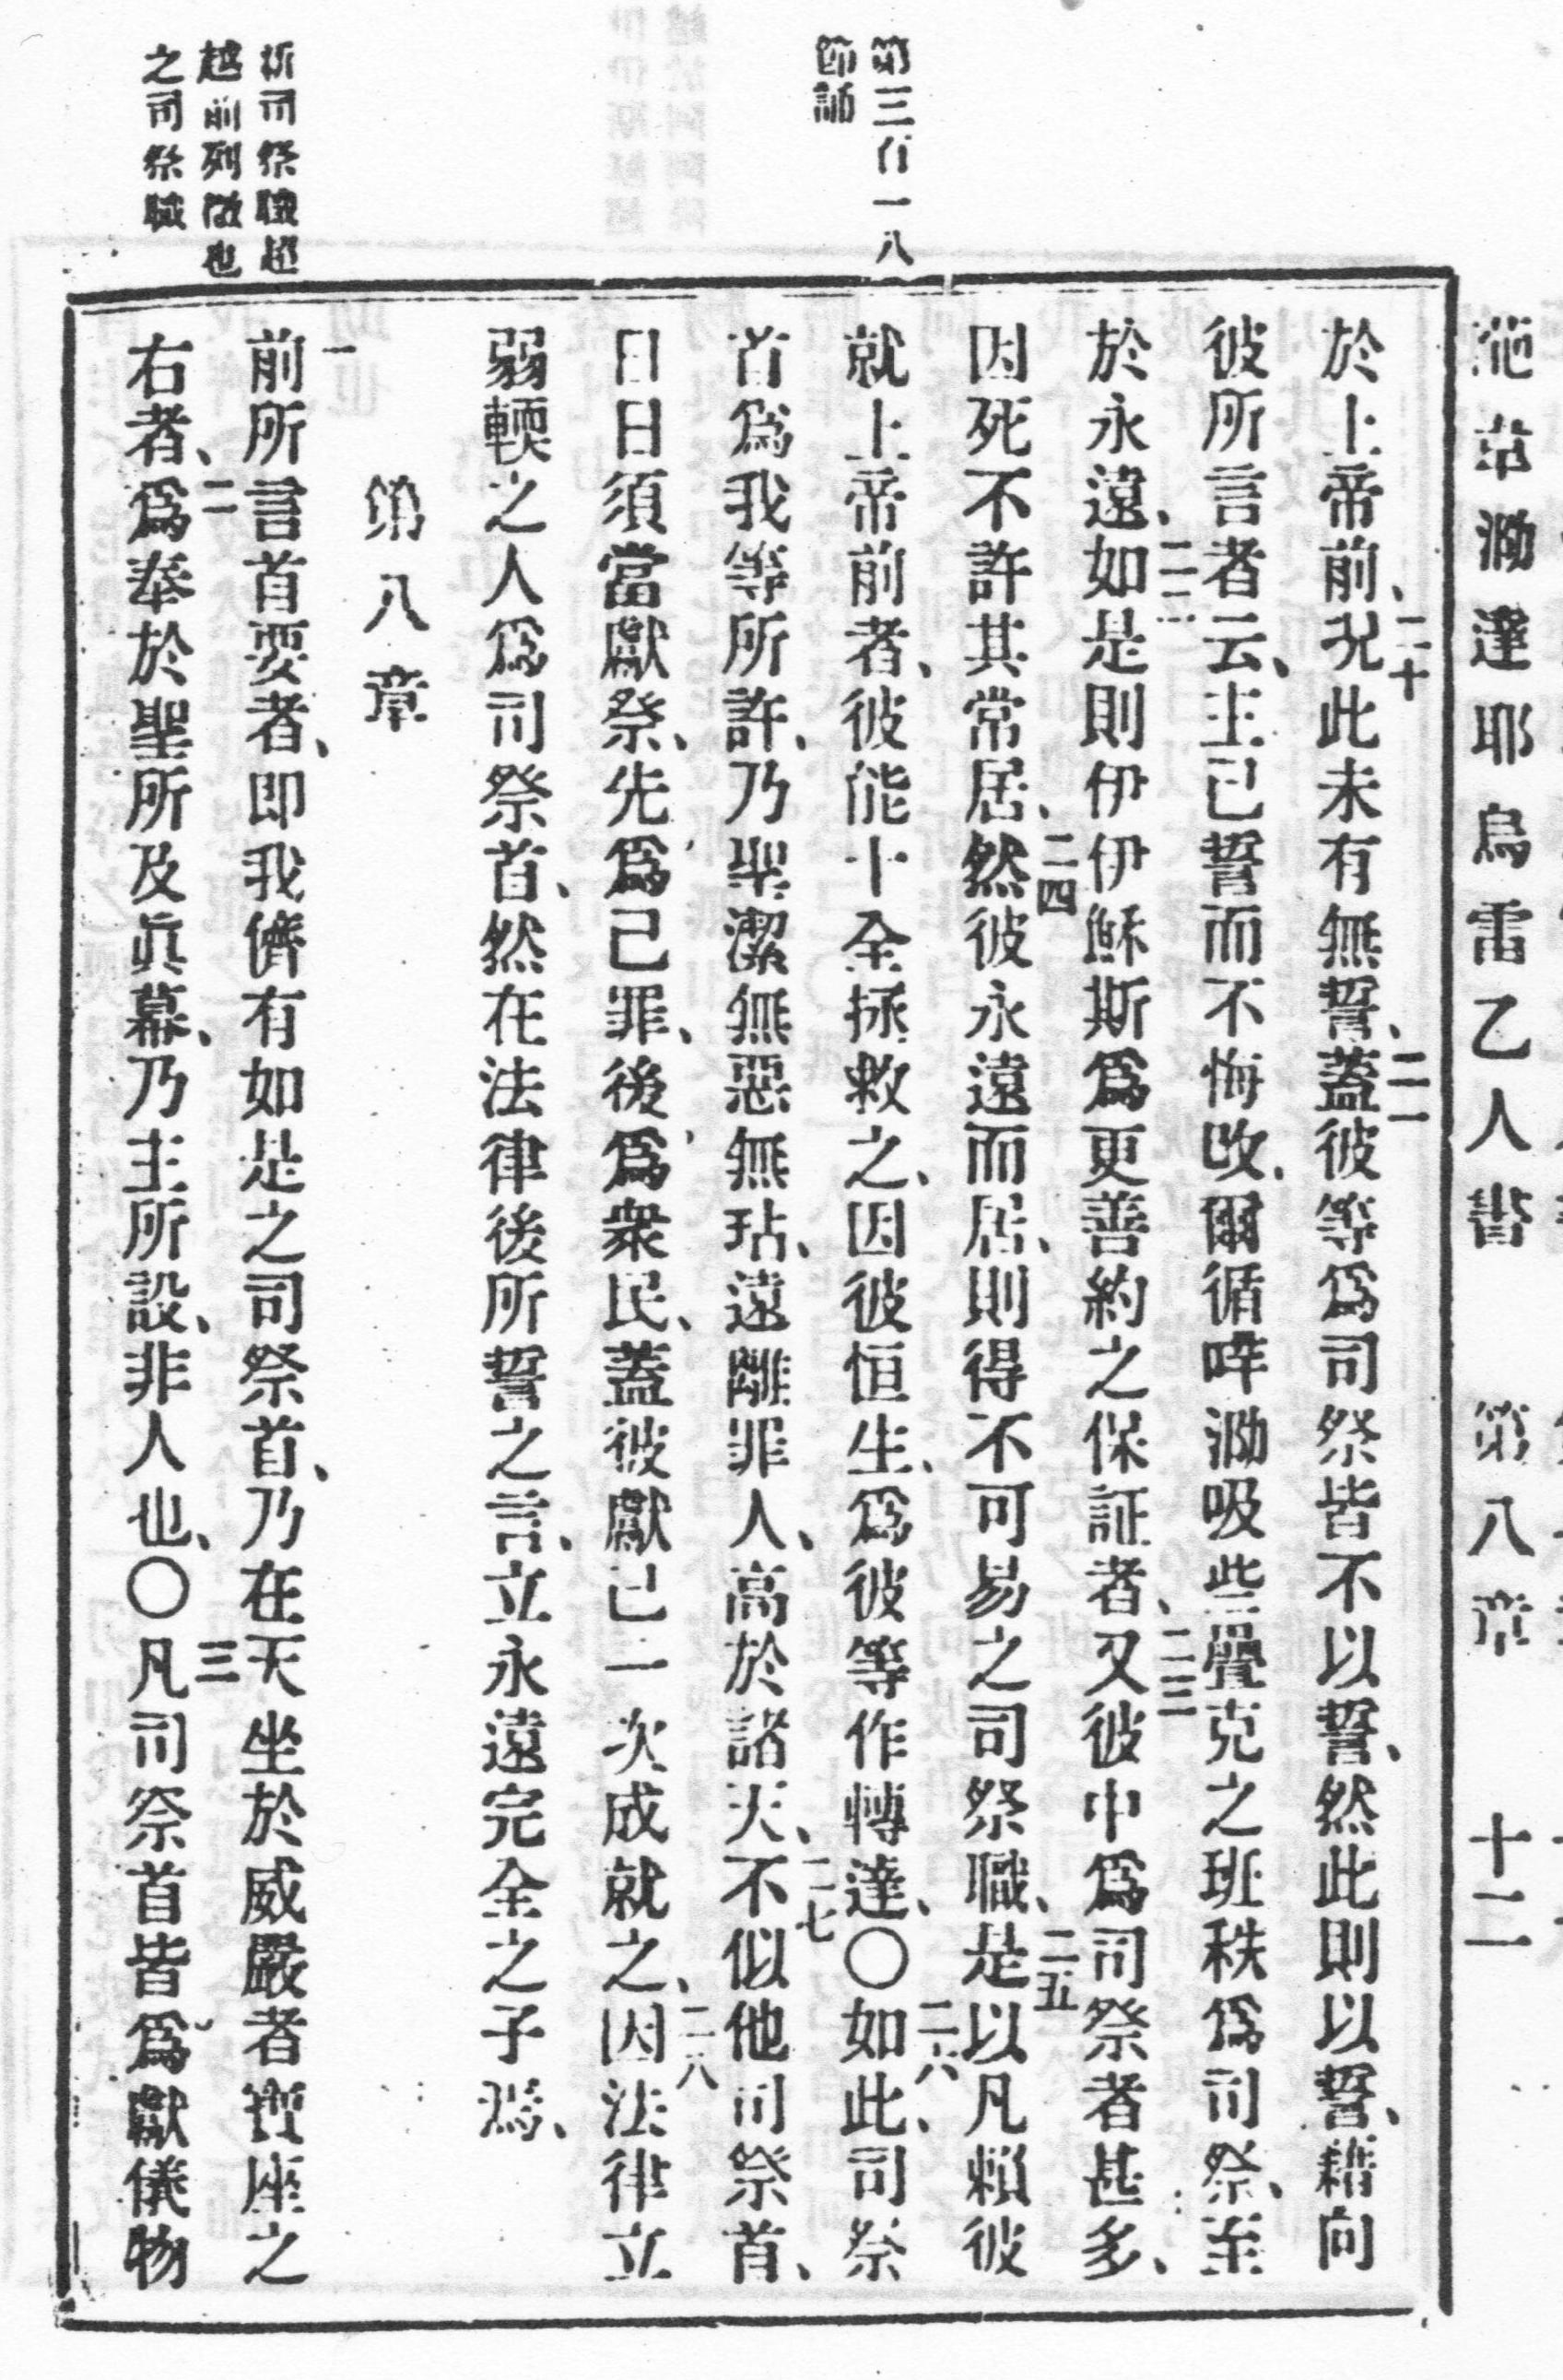 葩韦泐達耶烏雷乙人書 第八章 十二
第三百一八
節誦
於上帝前、二十况此未有無誓、二一蓋彼等爲司祭皆不以誓、然此則以誓、藉向
彼所言者云、主已誓而不悔改、爾循咩泐吸些璺克之班秩爲司祭、至
於永遠、二二如是則伊伊穌斯爲更善約之保証者、二三又彼中爲司祭者甚多、
因死不許其常居、二四然彼永遠而居、則得不可易之司祭職、二五是以凡賴彼
就上帝前者、彼能十全拯救之、因彼恒生、爲彼等作轉達、〇二六如此、司祭
首爲我等所許、乃聖潔無惡無玷、遠離罪人、高於諸天、二七不似他司祭首、
日日須當獻祭、先爲己罪、後爲衆民、蓋彼獻己一次成就之、二八因法律立
弱輭之人爲司祭首、然在法律後所誓之言、立永遠完全之子焉、
第八章
新司祭職超
越前列徵也
之司祭職
一前所言首要者、即我儕有如是之司祭首、乃在天坐於威嚴者寶座之
右者、二爲奉於聖所及眞幕、乃主所設、非人也、〇三凡司祭首皆爲獻儀物